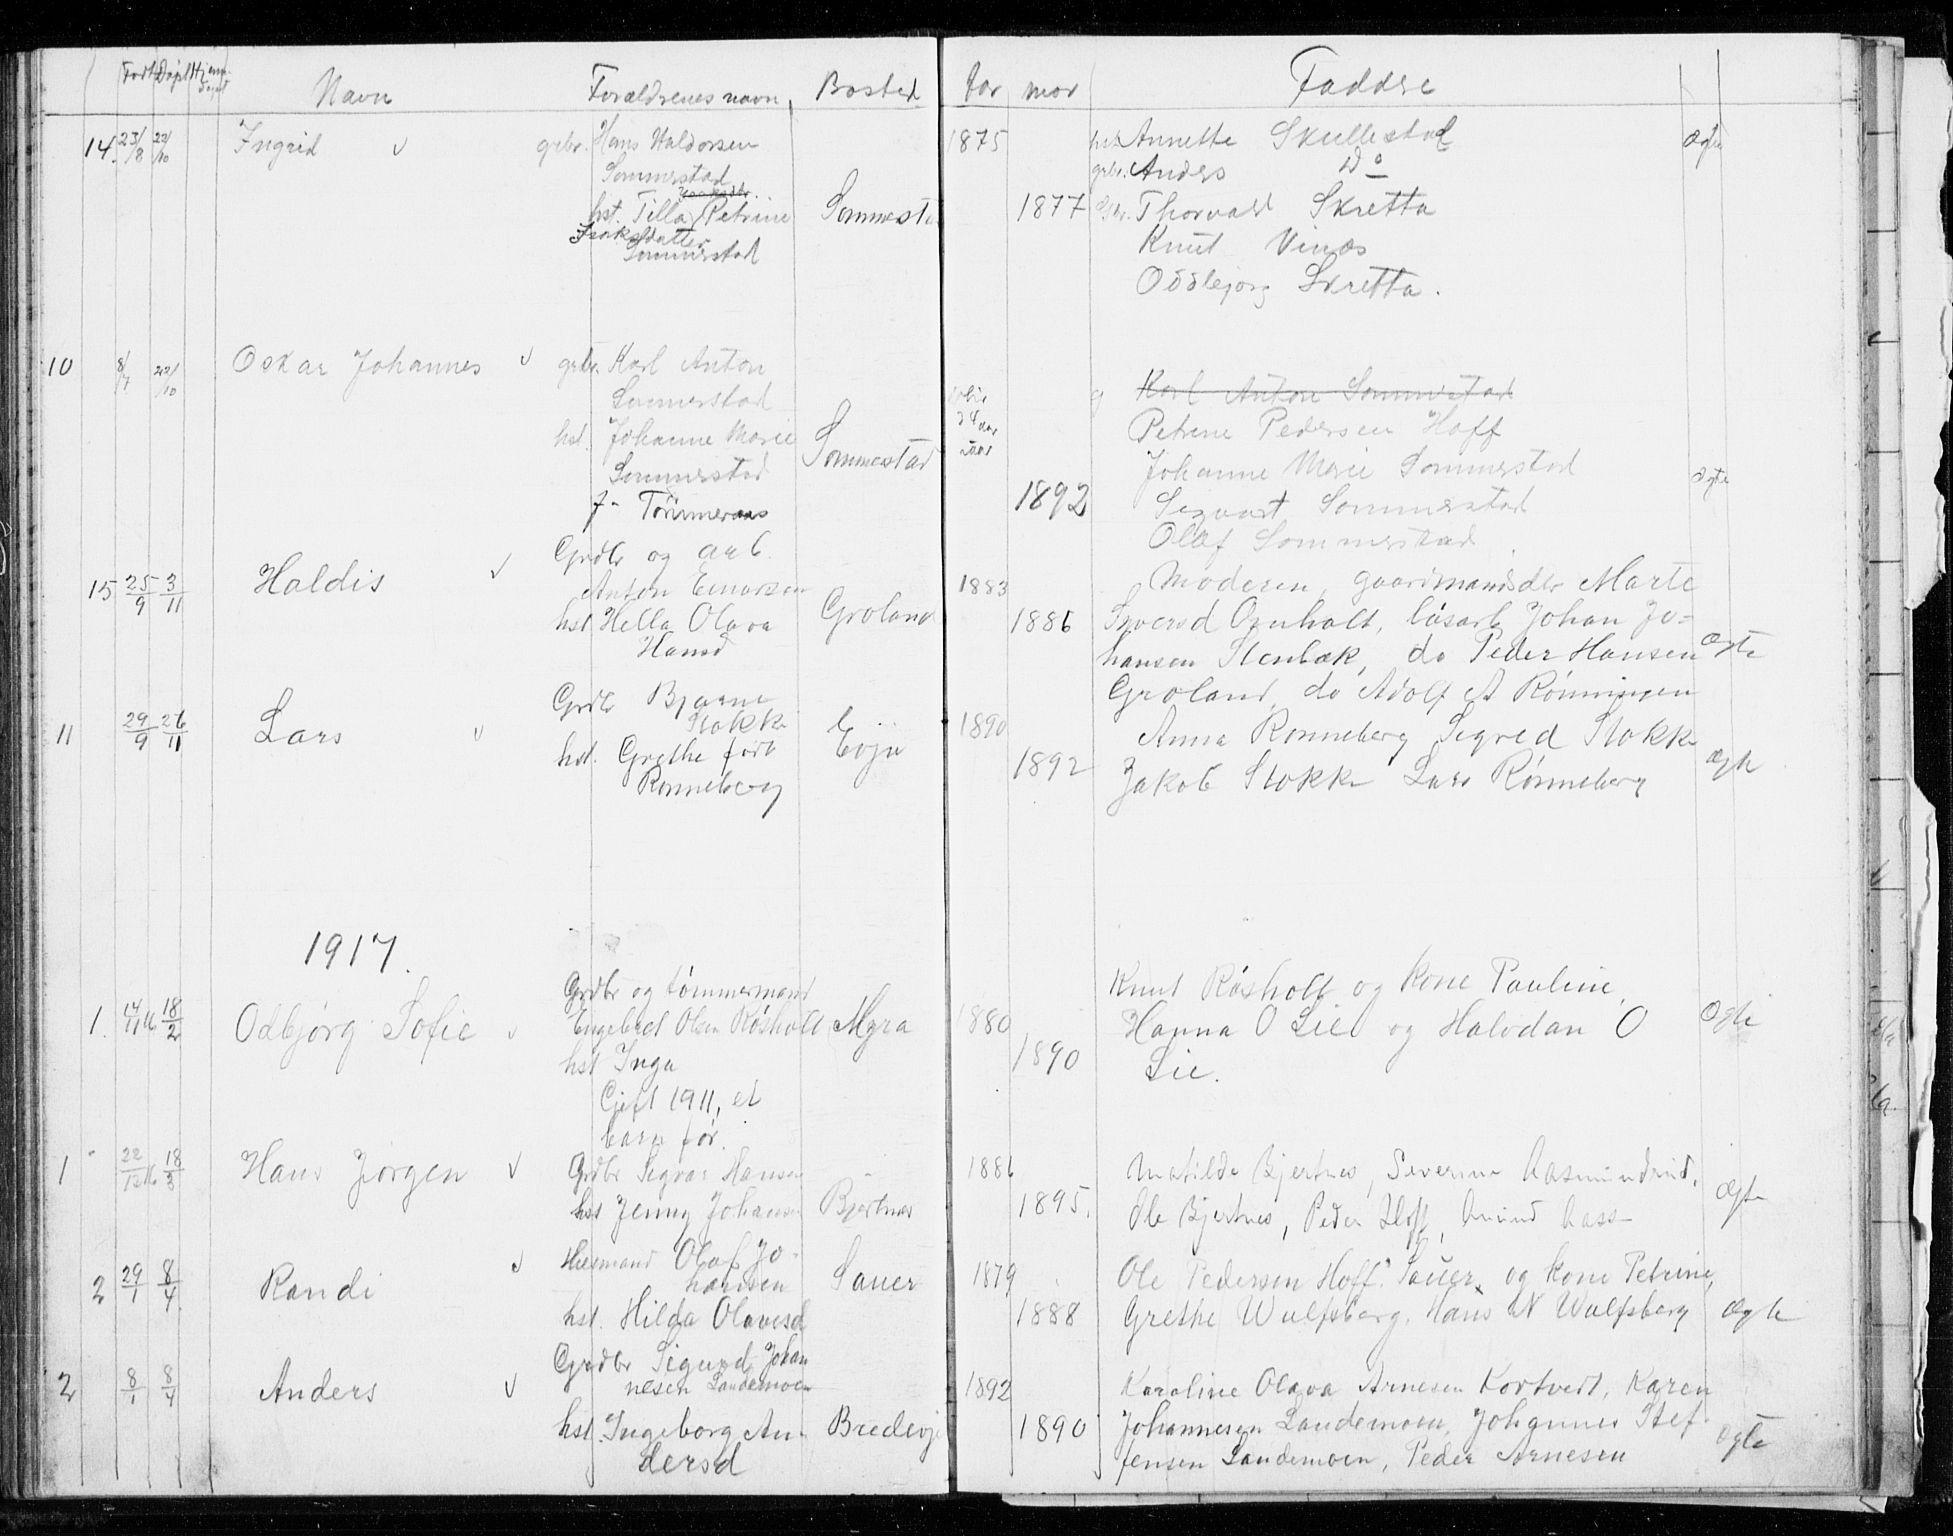 Født Døpt Hjem døpt Navn Forældrenes navn Bosted far mor Faddre
14. 23/8 22/10 Ingrid v grbr. Hans Haldorsen 1875 hst. Annette Skullestad Ægte
Sommerstad grbr. Anders Do
hst. Tilla Petrine Sommesta 1877 Thorvald Skretta
Isaksdatter Knut Vinæs
Sommerstad Oddbjørg Skretta.
10 8/7 22/10 Oskar Johannes v grbr. Karl Anton
Sommerstad g Karl Anton Sommerstad
hst. Johanne Marie Sommestad 34 aar Petrine Pedersen Hoff
Sommerstad Johanne Marie Sommerstad ægte
f- Tømmeraas 1892 Sigvart Sommerstad
Olaf Sommerstad
Grdbr og arb.
15 25/9 3/11 Haldis v Anton Einarsen Groland 1883 Moderen, gaardmandsdtr Marte
hst Hella Olava 1886 Syversd Ornholt, løsarb Johan Jo=
Hansd hansen Stenbæk, do Peder Hansen Ægte
Groland, do Adolf A Rønningen
11 29/9 26/11 Lars v Grdbr Bjarne Stokke Evju 1890 Anna Ronneberg Sigred Stokke
hst. Grethe født 1892 Jakob Stokke Lars Rønneberg Ægte
Ronneberg
1917.
Grdbr og tømmermand Knut Røsholt og kone Pauline,
1. 14/11 16 18/2 Odbjørg Sofie v Engebret Olsen Røsholt Myra 1880 Hanna O Lie og Halvdan O Ægte
hst Inga 1890 Lie.
Gift 1911, et
barn før.
1 22/12 16 18/3 Hans Jørgen v Grdbr Sigvar Hansen 1886 Matilde Bjertnes, Severine Aasmundrud,
hst Jenny Johansen Bjertnes 1895. Ole Bjertnes, Peder Hoff, Aass Ægte
2 29/1 8/4 Randi v Husmand Olaf Jo- Sauer 1879 Ole Pedersen Hoff. Sauer, og kone Petrine,
hansen
hst. Hilda Olavesd 1888 Grethe Wulfsberg, Hans N Wulfsberg Ægte
2 8/1 8/4 Anders v Grdbr Sigurd Johan 1892 Karoline Olava Arnesen Kortvedt, Karen
nesen Landemoen
hst. Ingeborg An- Bredevje 1890 Johannesen Landemoen, Johannes Stef Ægte
dersd fensen Landemoen, Peder Arnesen